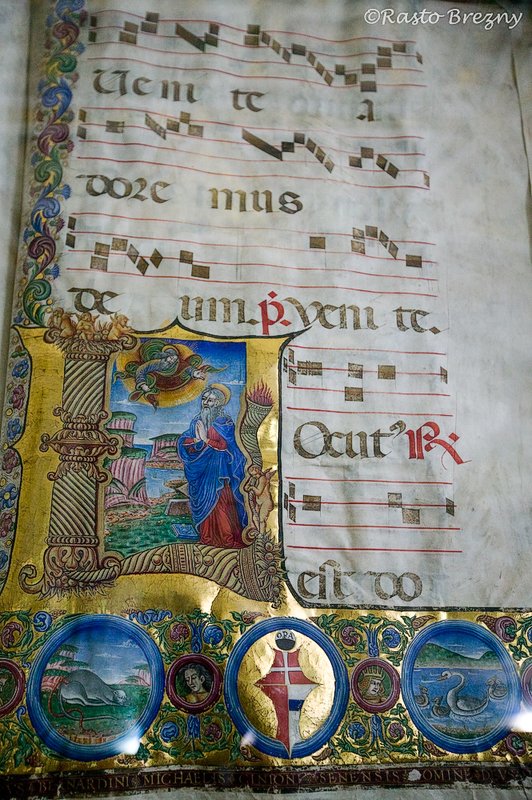 ©Rasto Brezny
Veni te a
dore mus
de um. p̄. veni te.
Locutꝰ ℟
est do
ORA
MICHAELIS SENENSIS